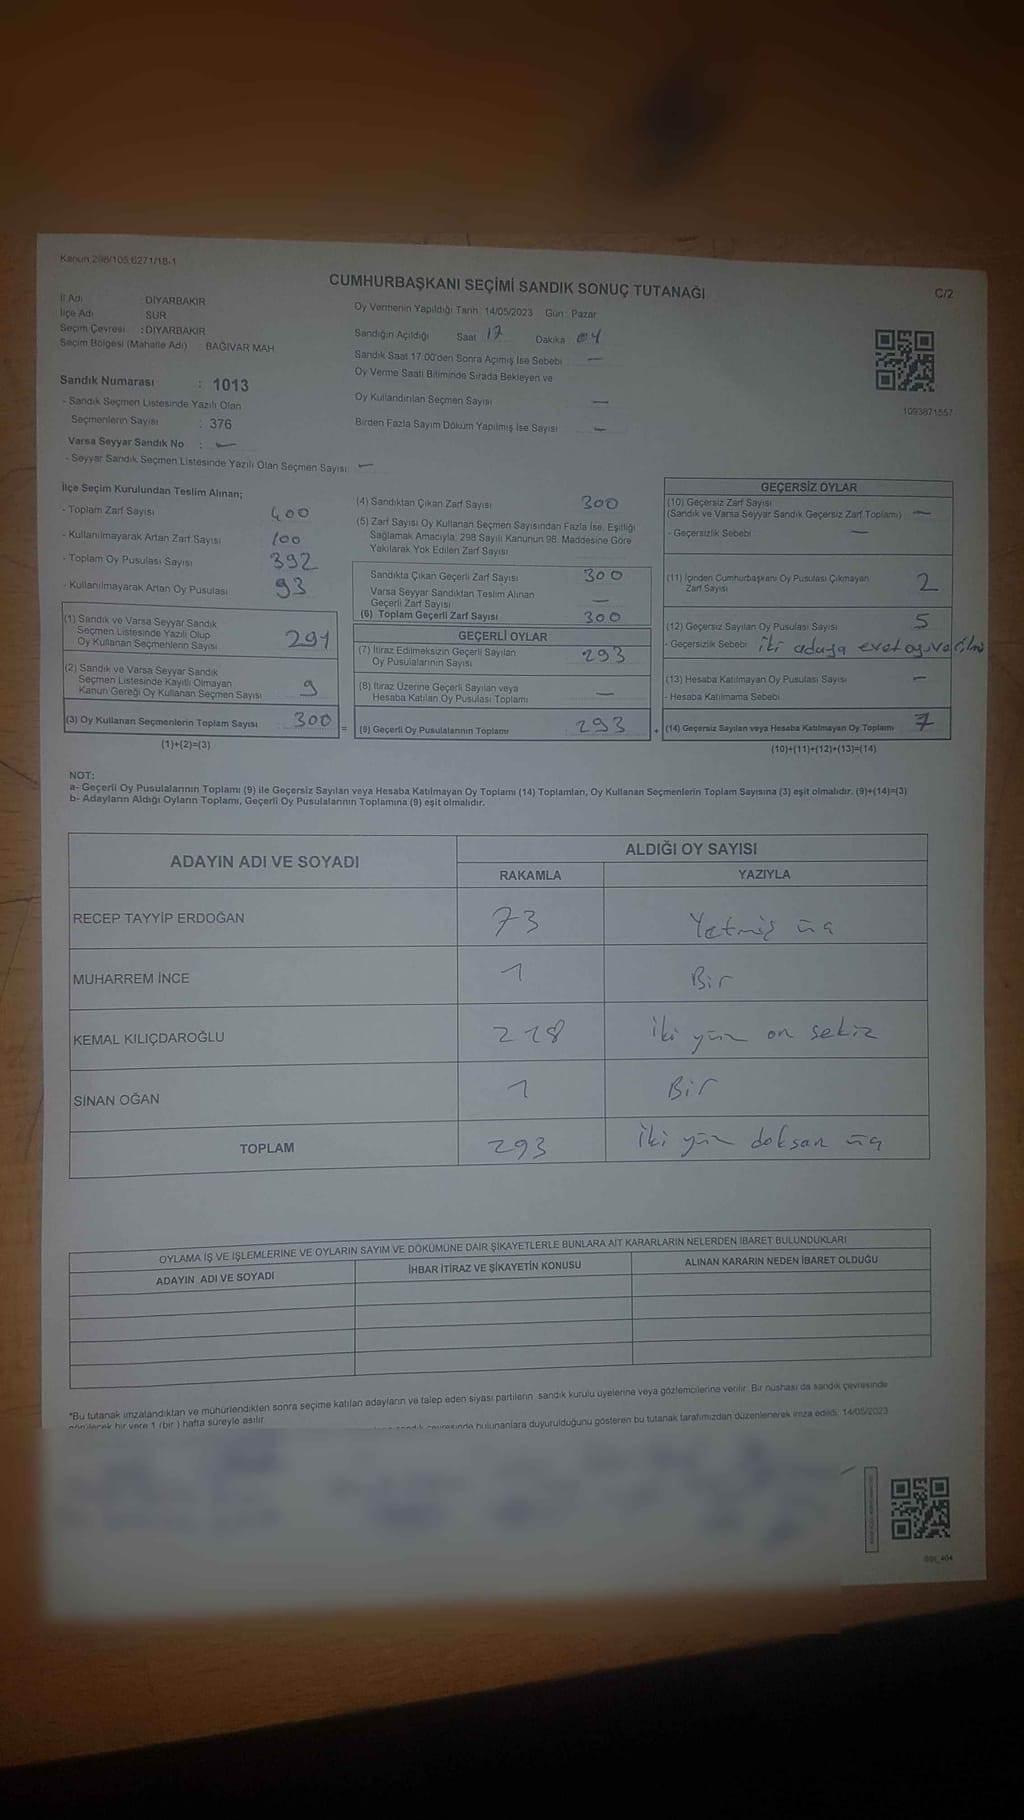 Kanun 298/105,6271/18-1
CUMHURBAŞKANI SEÇİMİ SANDIK SONUÇ TUTANAĞI
C/2
İl Adı : DİYARBAKIR
İlçe Adı : SUR
Seçim Çevresi : DİYARBAKIR
Seçim Bölgesi (Mahalle Adı) : BAĞIVAR MAH
Sandık Numarası : 1013
- Sandık Seçmen Listesinde Yazılı Olan
Seçmenlerin Sayısı : 376
Varsa Seyyar Sandık No : —
- Seyyar Sandık Seçmen Listesinde Yazılı Olan Seçmen Sayısı —
Oy Vermenin Yapıldığı Tarih: 14/05/2023 Gün : Pazar
Sandığın Açıldığı Saat 17 Dakika 04
Sandık Saat 17.00'den Sonra Açılmış İse Sebebi —
Oy Verme Saati Bitiminde Sırada Bekleyen ve
Oy Kullandırılan Seçmen Sayısı —
Birden Fazla Sayım Döküm Yapılmış İse Sayısı —
1093871557
İlçe Seçim Kurulundan Teslim Alınan;
- Toplam Zarf Sayısı 400
- Kullanılmayarak Artan Zarf Sayısı 100
- Toplam Oy Pusulası Sayısı 392
- Kullanılmayarak Artan Oy Pusulası 93
(1) Sandık ve Varsa Seyyar Sandık
Seçmen Listesinde Yazılı Olup
Oy Kullanan Seçmenlerin Sayısı 291
(2) Sandık ve Varsa Seyyar Sandık
Seçmen Listesinde Kayıtlı Olmayan
Kanun Gereği Oy Kullanan Seçmen Sayısı 9
(3) Oy Kullanan Seçmenlerin Toplam Sayısı 300 =
(1)+(2)=(3)
(4) Sandıktan Çıkan Zarf Sayısı 300
(5) Zarf Sayısı Oy Kullanan Seçmen Sayısından Fazla İse, Eşitliği
Sağlamak Amacıyla, 298 Sayılı Kanunun 98. Maddesine Göre
Yakılarak Yok Edilen Zarf Sayısı
Sandıkta Çıkan Geçerli Zarf Sayısı 300
Varsa Seyyar Sandıktan Teslim Alınan
Geçerli Zarf Sayısı —
(6) Toplam Geçerli Zarf Sayısı 300
GEÇERLİ OYLAR
(7) İtiraz Edilmeksizin Geçerli Sayılan
Oy Pusulalarının Sayısı 293
(8) İtiraz Üzerine Geçerli Sayılan veya
Hesaba Katılan Oy Pusulası Toplamı —
(9) Geçerli Oy Pusulalarının Toplamı 293 +
GEÇERSİZ OYLAR
(10) Geçersiz Zarf Sayısı
(Sandık ve Varsa Seyyar Sandık Geçersiz Zarf Toplamı) —
- Geçersizlik Sebebi —
(11) İçinden Cumhurbaşkanı Oy Pusulası Çıkmayan
Zarf Sayısı 2
(12) Geçersiz Sayılan Oy Pusulası Sayısı 5
- Geçersizlik Sebebi iki adaya evet oyu
(13) Hesaba Katılmayan Oy Pusulası Sayısı —
- Hesaba Katılmama Sebebi
(14) Geçersiz Sayılan veya Hesaba Katılmayan Oy Toplamı 7
(10)+(11)+(12)+(13)=(14)
NOT:
a- Geçerli Oy Pusulalarının Toplamı (9) ile Geçersiz Sayılan veya Hesaba Katılmayan Oy Toplamı (14) Toplamları, Oy Kullanan Seçmenlerin Toplam Sayısına (3) eşit olmalıdır. (9)+(14)=(3)
b- Adayların Aldığı Oyların Toplamı, Geçerli Oy Pusulalarının Toplamına (9) eşit olmalıdır.
ADAYIN ADI VE SOYADI
ALDIĞI OY SAYISI
RAKAMLA YAZIYLA
RECEP TAYYİP ERDOĞAN 73 Yetmiş üç
MUHARREM İNCE 1 Bir
KEMAL KILIÇDAROĞLU 218 iki yüz on sekiz
SİNAN OĞAN 1 Bir
TOPLAM 293 İki yüz doksan üç
OYLAMA İŞ VE İŞLEMLERİNE VE OYLARIN SAYIM VE DÖKÜMÜNE DAİR ŞİKAYETLERLE BUNLARA AİT KARARLARIN NELERDEN İBARET BULUNDUKLARI
ADAYIN ADI VE SOYADI İHBAR İTİRAZ VE ŞİKAYETİN KONUSU ALINAN KARARIN NEDEN İBARET OLDUĞU
*Bu tutanak imzalandıktan ve mühürlendikten sonra seçime katılan adayların ve talep eden siyasi partilerin, sandık kurulu üyelerine veya gözlemcilerine verilir. Bir nüshası da sandık çevresinde
görülecek bir yere 1 (bir ) hafta süreyle asılır.
çevresinde bulunanlara duyurulduğunu gösteren bu tutanak tarafımızdan düzenlenerek imza edildi. 14/05/2023